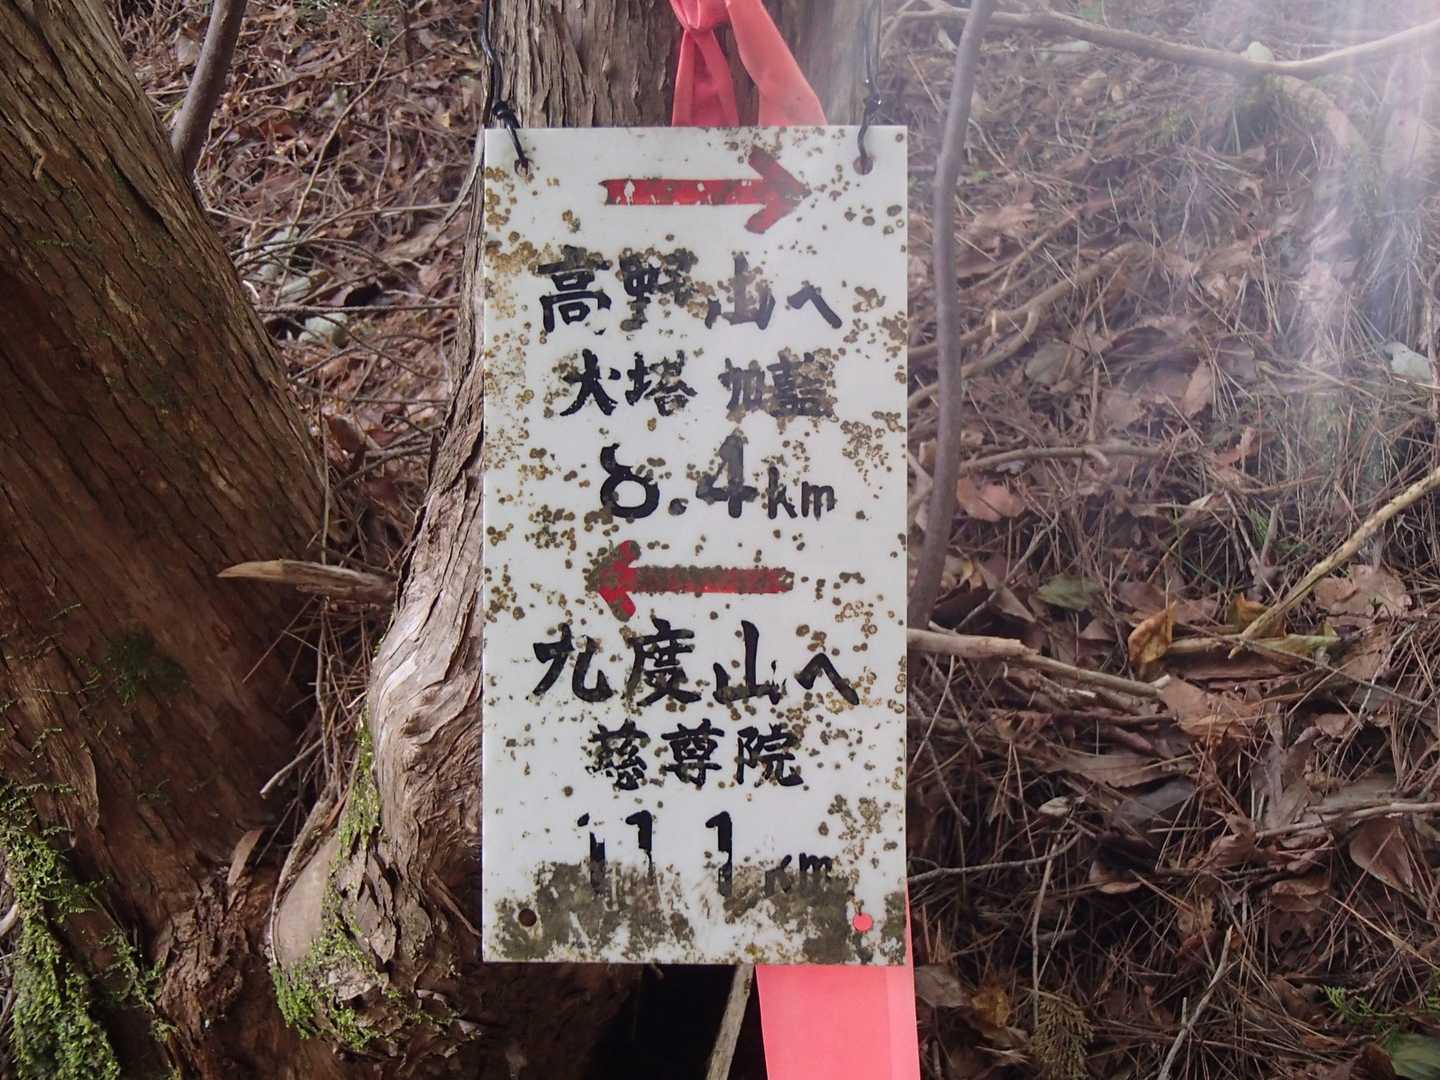 →
高野山へ
大塔 伽藍
8.4km
←
九度山へ
慈尊院
11.1km